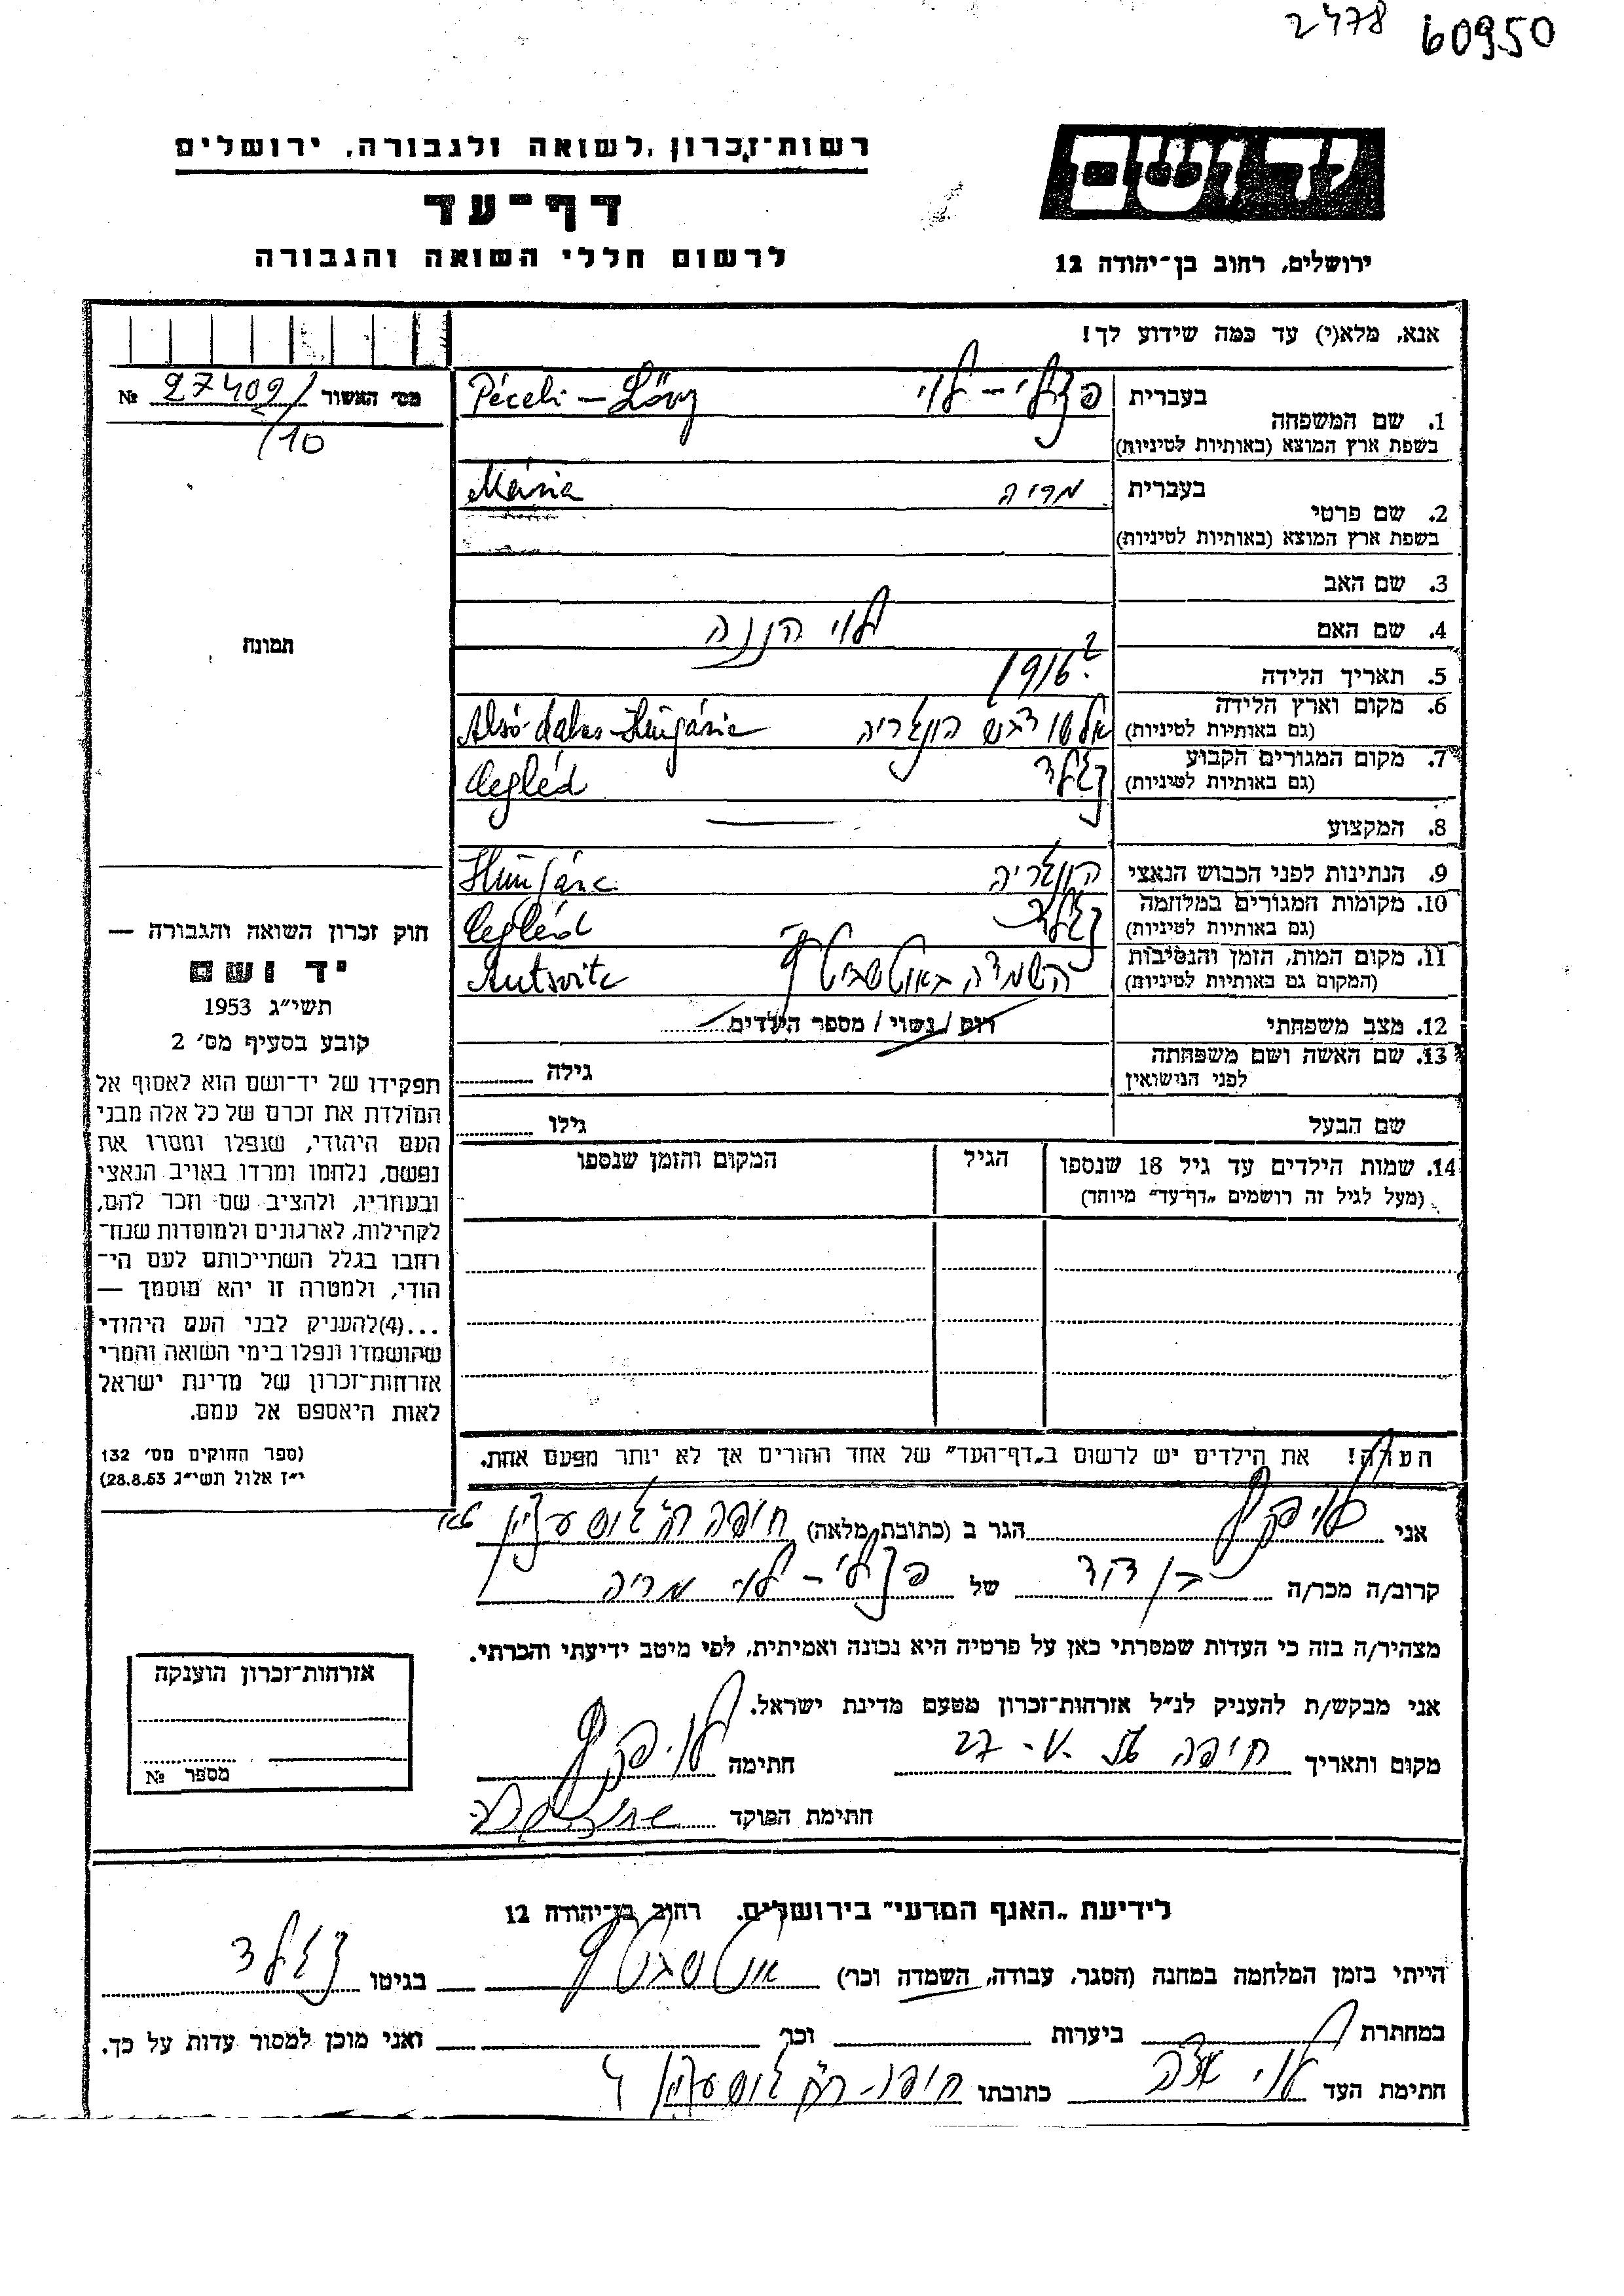 2478 60950
רשות־זכרון לשואה ולגבורה, ירושלים
יד ושם
דף־עד
לרשום חללי השואה והגבורה
ירושלים, רחוב בן־יהודה 12
אנא, מלא(י) עד כמה שידוע לך!
מס׳ האשור 27409/ №
/10
בעברית פצלי – לוי Péceli – Lővy
1. שם המשפחה
בשפת ארץ המוצא (באותיות לטיניות)
בעברית מריה Mária
2. שם פרטי
בשפת ארץ המוצא (באותיות לטיניות)
3. שם האב
4. שם האם לוי
תמונה
5. תאריך הלידה 1916 ?
6. מקום וארץ הלידה
(גם באותיות לטיניות) הונגריה Alsó-dabas-Hungária
7. מקום המגורים הקבוע
(גם באותיות לטיניות) צגלד Cegléd
8. המקצוע —
9. הנתינות לפני הכבוש הנאצי הונגריה
10. מקומות המגורים במלחמה
(גם באותיות לטיניות) צגלד Cegléd
11. מקום המות, הזמן והנסיבות
(המקום גם באותיות לטיניות) השמדה באוטשביץ Autsvitc
12. מצב משפחתי רוק / נשוי / מספר הילדים
13. שם האשה ושם משפחתה
לפני הנישואין גילה
שם הבעל גילו
14. שמות הילדים עד גיל 18 שנספו הגיל המקום והזמן שנספו
(מעל לגיל זה רושמים „דף־עד” מיוחד)
הערה! את הילדים יש לרשום ב„דף־העד” של אחד ההורים אך לא יותר מפעם אחת.
חוק זכרון השואה והגבורה —
יד ושם
תשי״ג 1953
קובע בסעיף מס׳ 2
תפקידו של יד־ושם הוא לאסוף אל
המולדת את זכרם של כל אלה מבני
העם היהודי, שנפלו ומסרו את
נפשם, נלחמו ומרדו באויב הנאצי
ובעוזריו, ולהציב שם וזכר להם,
לקהילות, לארגונים ולמוסדות שנח־
רבו בגלל השתייכותם לעם הי־
הודי, ולמטרה זו יהא מוסמך —
...(4) להעניק לבני העם היהודי
שהושמדו ונפלו בימי השואה והמרי
אזרחות־זכרון של מדינת ישראל
לאות היאספם אל עמם.
(ספר החוקים מס׳ 132
י״ז אלול תשי״ג 28.8.53)
אני הגר ב (כתובת מלאה) חיפה רח׳ גוש עציון
קרוב/ה מכר/ה בן דוד של פצלי – לוי מריה
מצהיר/ה בזה כי העדות שמסרתי כאן על פרטיה היא נכונה ואמיתית, לפי מיטב ידיעתי והכרתי.
אני מבקש/ת להעניק לנ״ל אזרחות־זכרון מטעם מדינת ישראל.
מקום ותאריך חיפה חתימה
חתימת הפוקד
אזרחות־זכרון הוענקה
מספר №
לידיעת „האגף המדעי” בירושלים, רחוב בן־יהודה 12
הייתי בזמן המלחמה במחנה (הסגר, עבודה, השמדה וכר׳) אוטשביץ בגיטו צגלד
במחתרת ביערות וכר׳ ואני מוכן למסור עדות על כך.
חתימת העד לוי כתובתו חיפה־ רח׳ גוש עציון 4